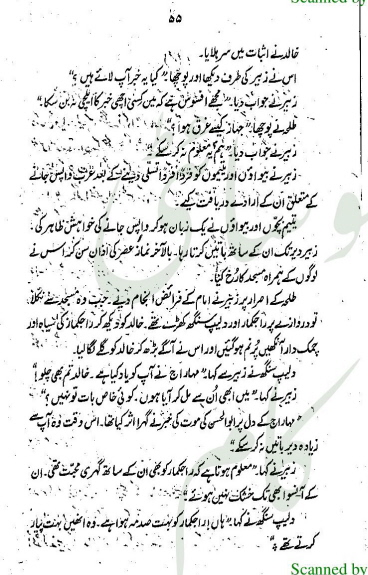 Scanned by
۵۵
خالد نے اثبات میں سر ہلایا۔
اس نے زبیر کی طرف دیکھا اور پوچھا۔ "کیا یہ خبر آپ لائے ہیں؟"
زبیر نے جواب دیا۔ "مجھے افسوس ہے کہ میں کسی اچھی خبر کا ایلچی نہ بن سکا۔"
طلحہ نے پوچھا۔ "جہاز کیسے غرق ہوا؟"
زبیر نے جواب دیا۔ "ہم؟ معلوم نہ کر سکے"
زبیر نے بیواؤں اور یتیموں کو فرداً فرداً تسلی دینے کے بعد عرب واپس جانے
کے متعلق ان کے ارادے دریافت کیے۔
یتیم بچوں اور بیواؤں نے یک زبان ہو کر واپس جانے کی خواہش ظاہر کی۔
زبیر دیر تک ان کے ساتھ باتیں کرتا رہا۔ بالآخر نماز عصر کی اذان سن کر اس نے
لوگوں کے ہمراہ مسجد کا رُخ کیا۔
طلحہ کے اصرار پر زبیر نے امام کے فرائض انجام دیے۔ جب وہ مسجد سے نکلے
تو دروازے پر راجکمار اور دلیپ سنگھ کھڑے تھے۔ خالد کو دیکھ کر راجکمار کی سیاہ اور
چمک دار آنکھیں پُرنم ہو گئیں اور اس نے آگے بڑھ کر خالد کو گلے لگا لیا۔
دلیپ سنگھ نے زبیر سے کہا۔ "مہاراج نے آپ کو یاد کیا ہے۔ خالد تم بھی چلو!"
زبیر نے کہا۔ "میں ابھی اُن سے مل کر آیا ہوں۔ کوئی خاص بات تو نہیں؟"
"مہاراج کے دل پر ابوالحسن کی موت کی خبر نے گہرا اثر کیا تھا۔ اس وقت وہ آپ سے
زیادہ دیر باتیں نہ کر سکے"
زبیر نے کہا۔ "معلوم ہوتا ہے کہ راجکمار کو بھی ان کے ساتھ گہری محبت تھی۔ ان
کے آنسو ابھی تک خشک نہیں ہوئے"
دلیپ سنگھ نے کہا۔ "ہاں! راجکمار کو بہت صدمہ ہوا ہے۔ وہ انھیں بہت پیار
کرتے تھے"
Scanned by